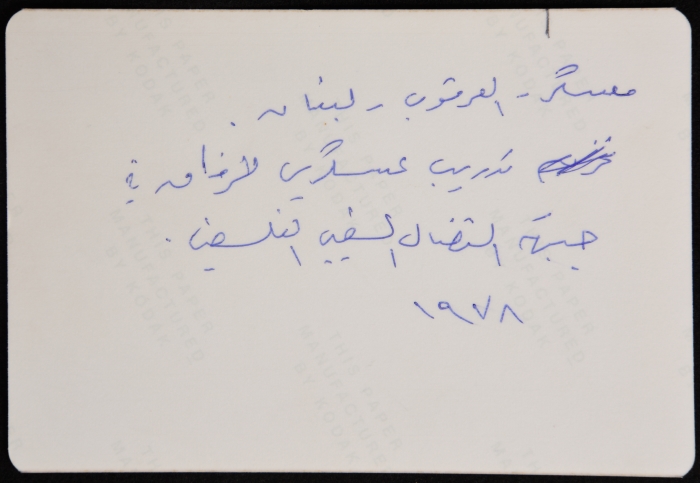 معسكر - العرقوب - لبنان.
تدريب عسكري لأرفاق في
جبهة النضال الشعبي الفلسطيني.
١٩٧٨
THIS PAPER
MANUFACTURED
BY KODAK